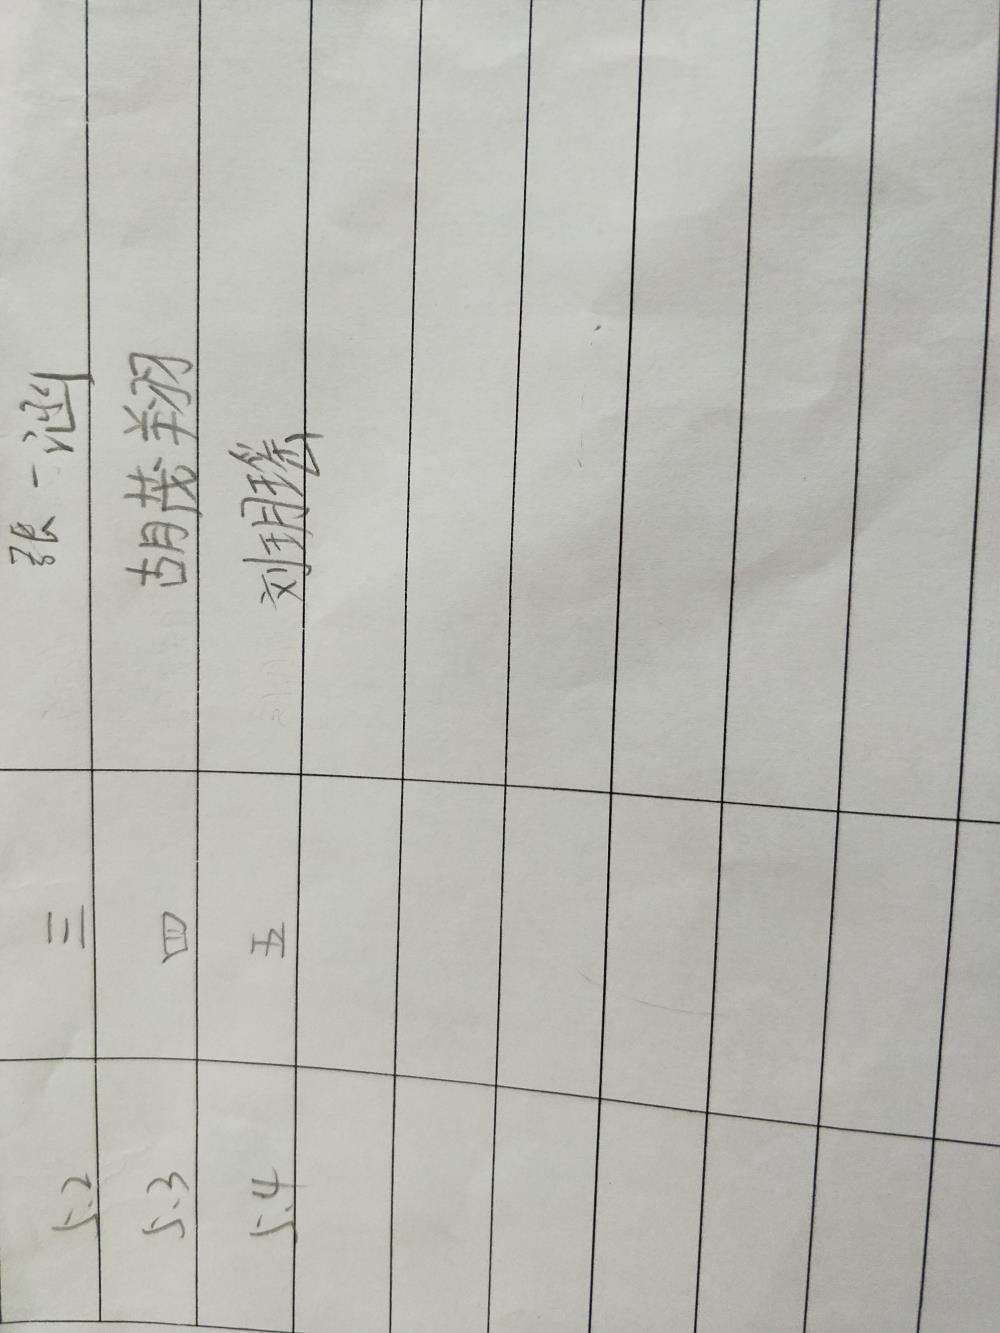 5.2 三 张一涵
5.3 四 胡茂翔
5.4 五 刘玥瑤